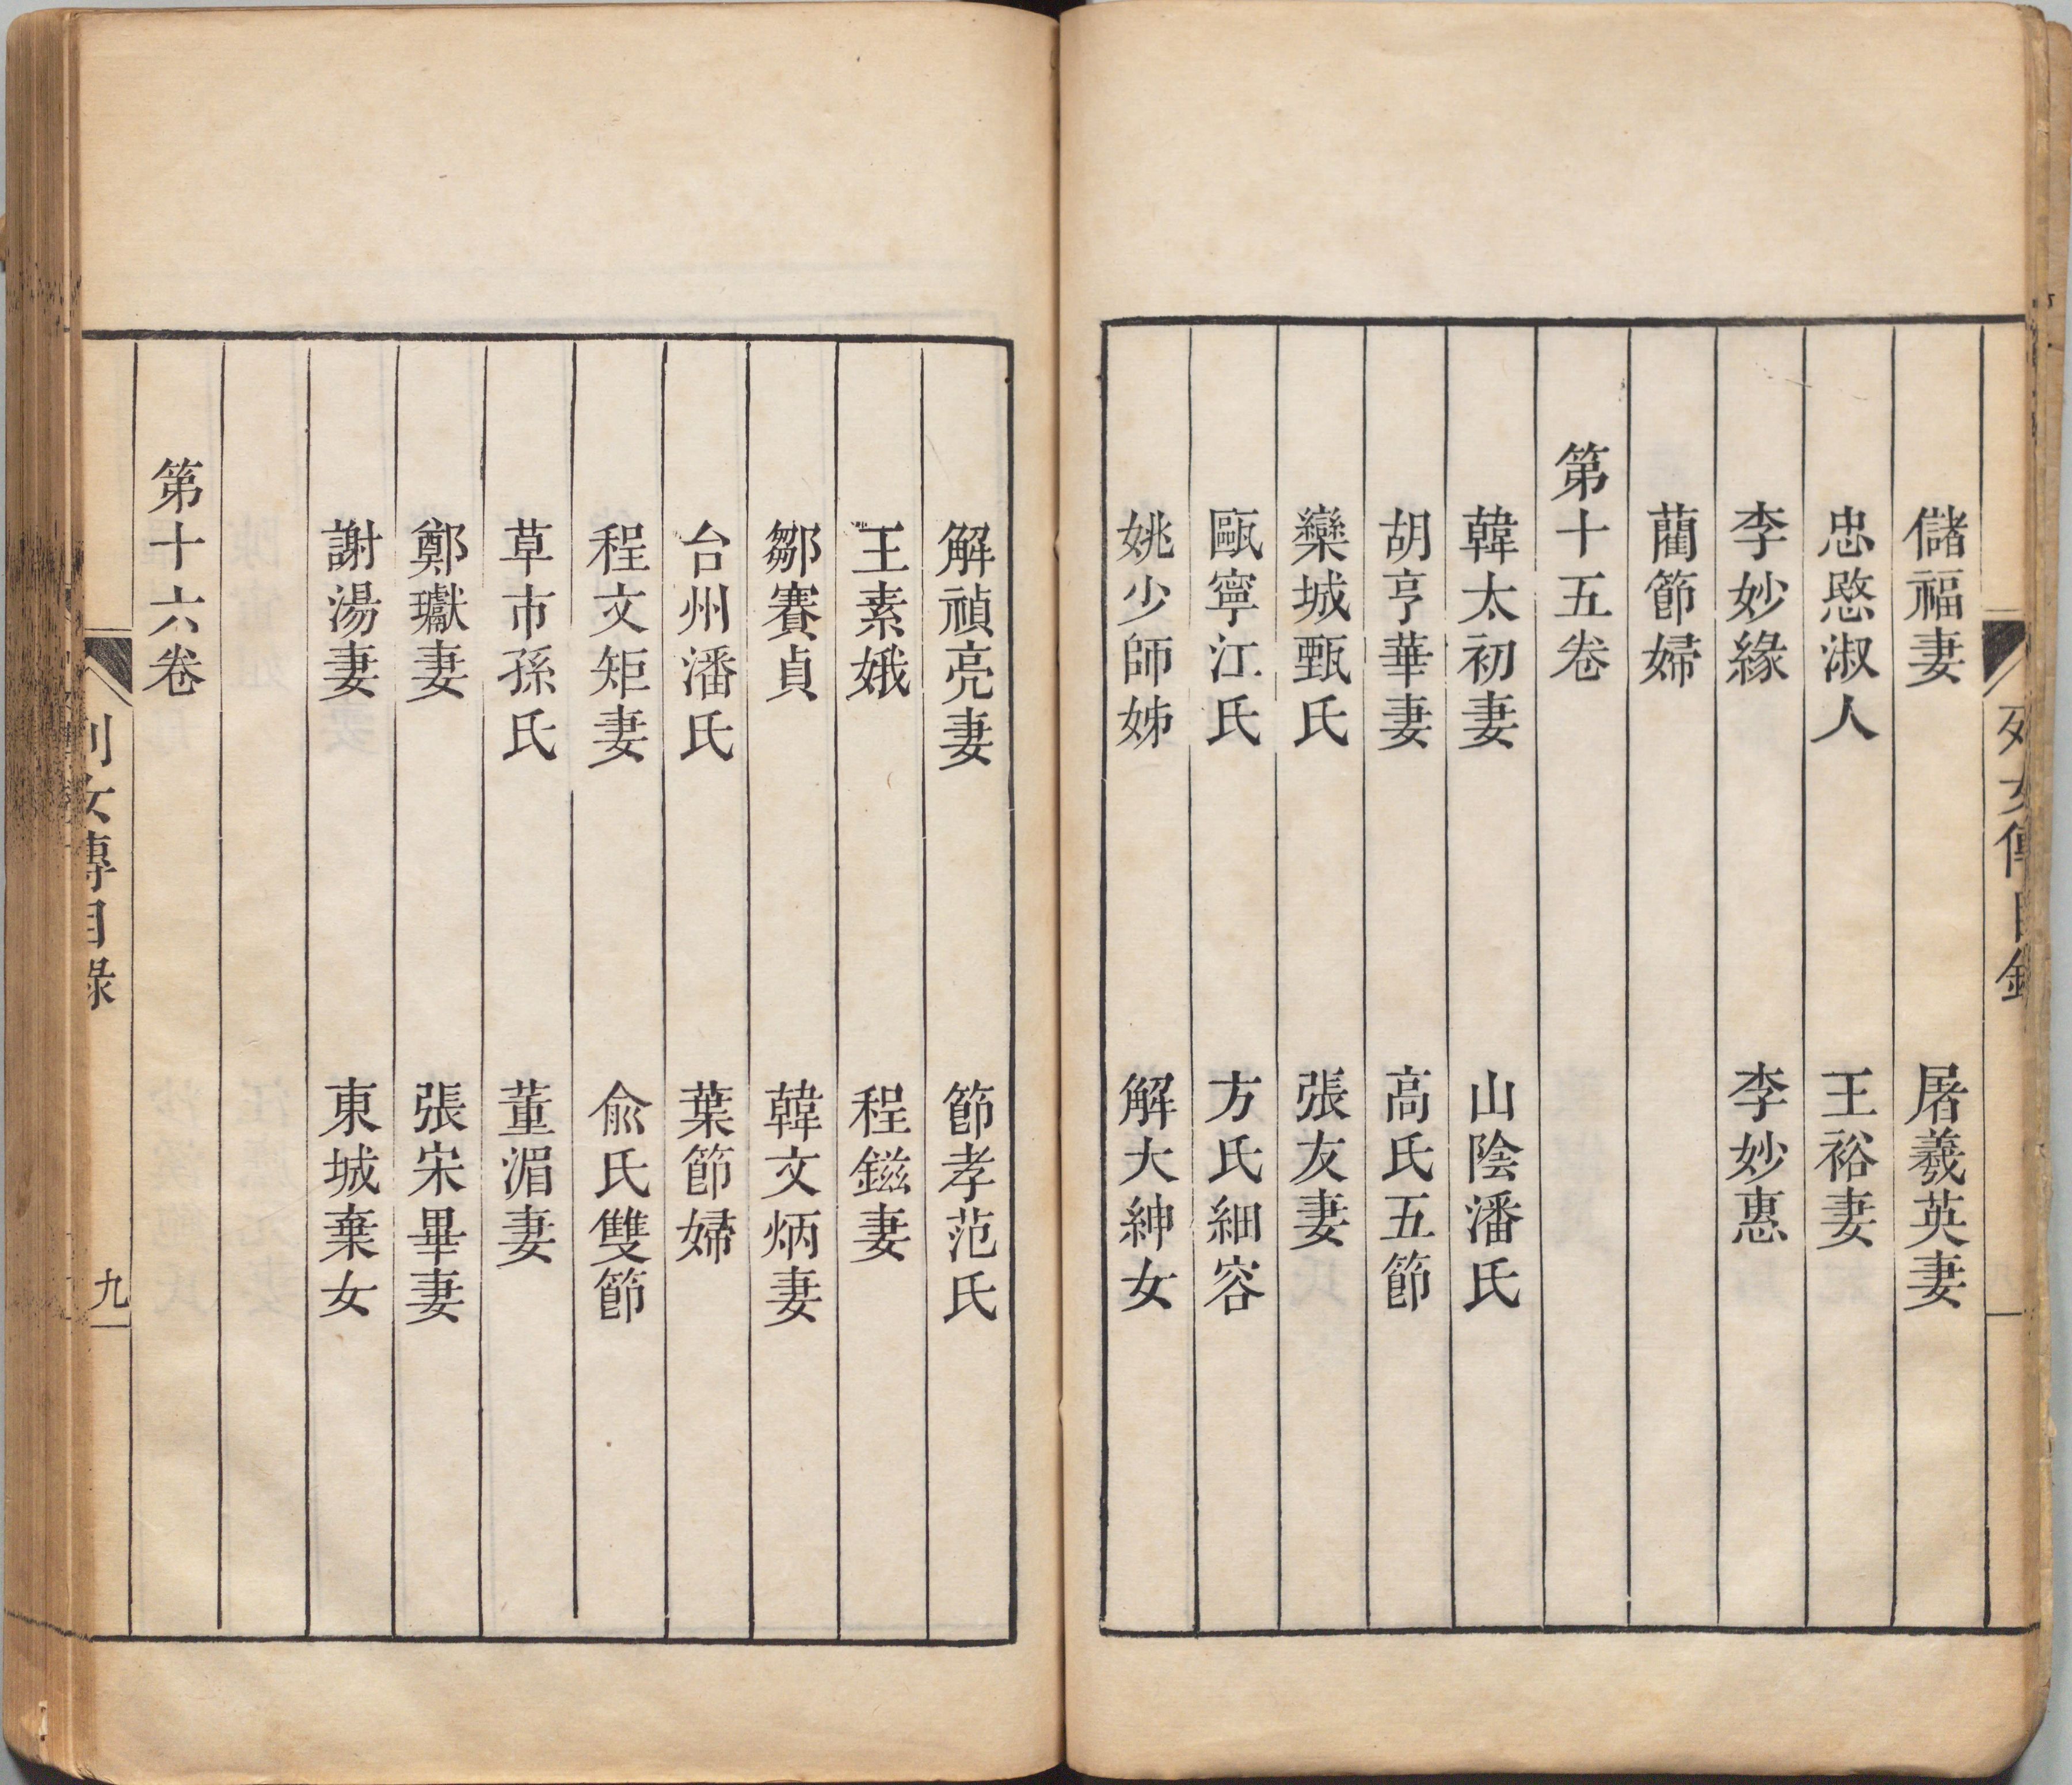 列女傳目錄
儲福妻　屠羲英妻
忠愍淑人　王裕妻
李妙緣　李妙惠
藺節婦
第十五卷
韓太初妻　山陰潘氏
胡亨華妻　高氏五節
欒城甄氏　張友妻
甌寧江氏　方氏細容
姚少師姊　解大紳女
解禎亮妻　節孝范氏
王素娥　程鎡妻
鄒賽貞　韓文炳妻
台州潘氏　葉節婦
程文矩妻　俞氏雙節
草市孫氏　董湄妻
鄭瓛妻　張宋畢妻
謝湯妻　東城棄女
第十六卷
列女傳目錄　九